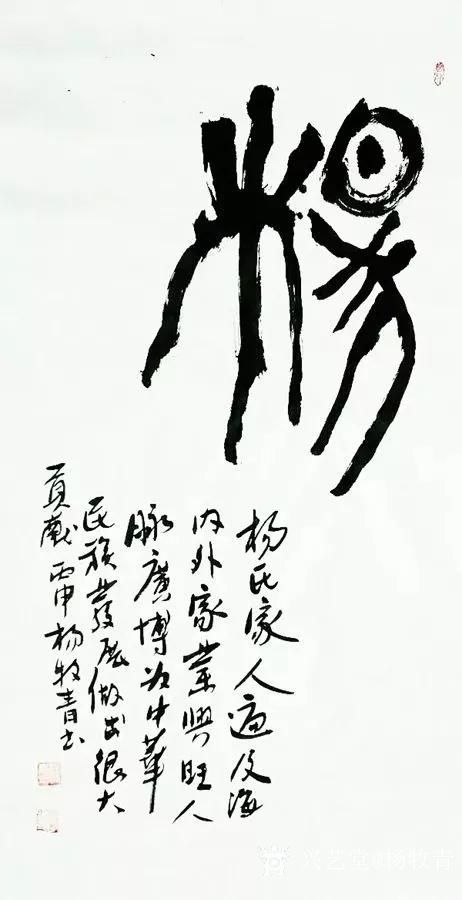 楊
杨氏家人遍及海
内外家業興旺人
脉廣博为中華
民族發展做出很大
貢献丙申杨牧青书
兴艺堂@杨牧青